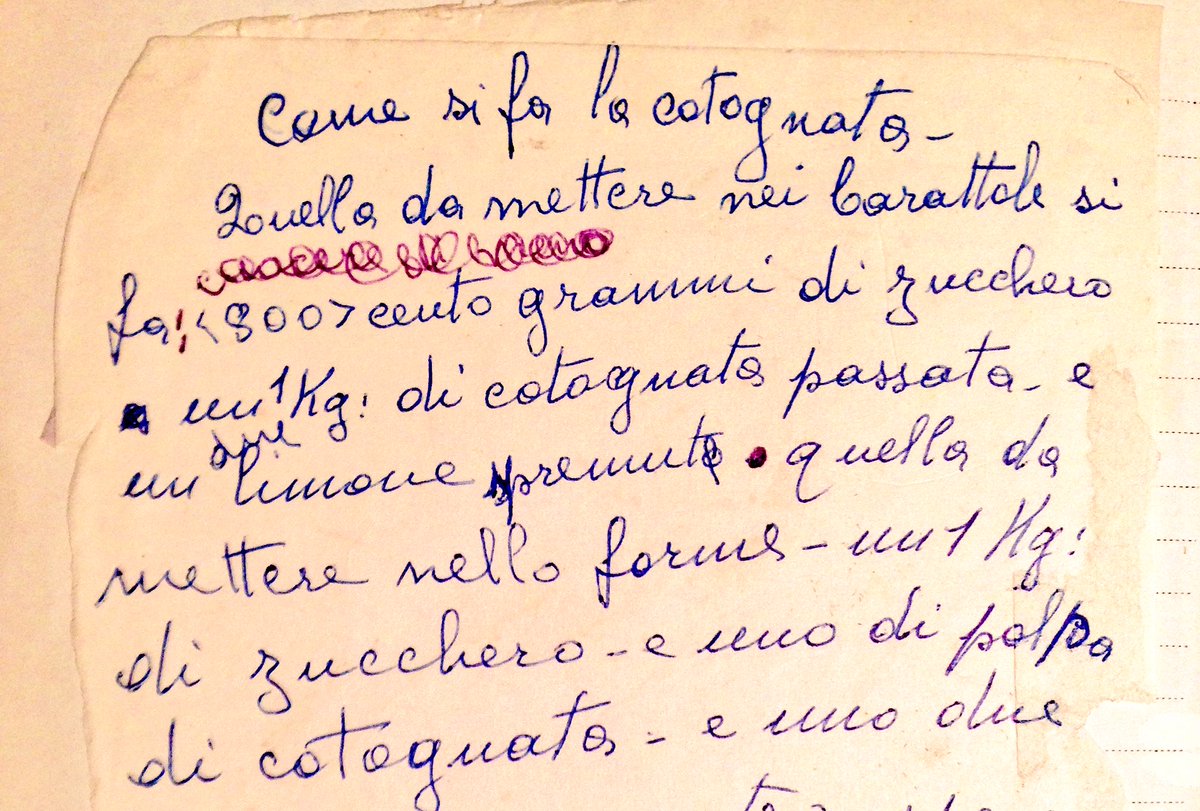 Come si fa la cotognata -
Quella da mettere nei barattole si
fa: <800> cento grammi di zucchero
un 1 Kg: di cotognata passata - e
due
un limone spremute . quella da
mettere nello forme - un 1 Kg:
di zucchero - e uno di polpa
di cotognata - e uno due